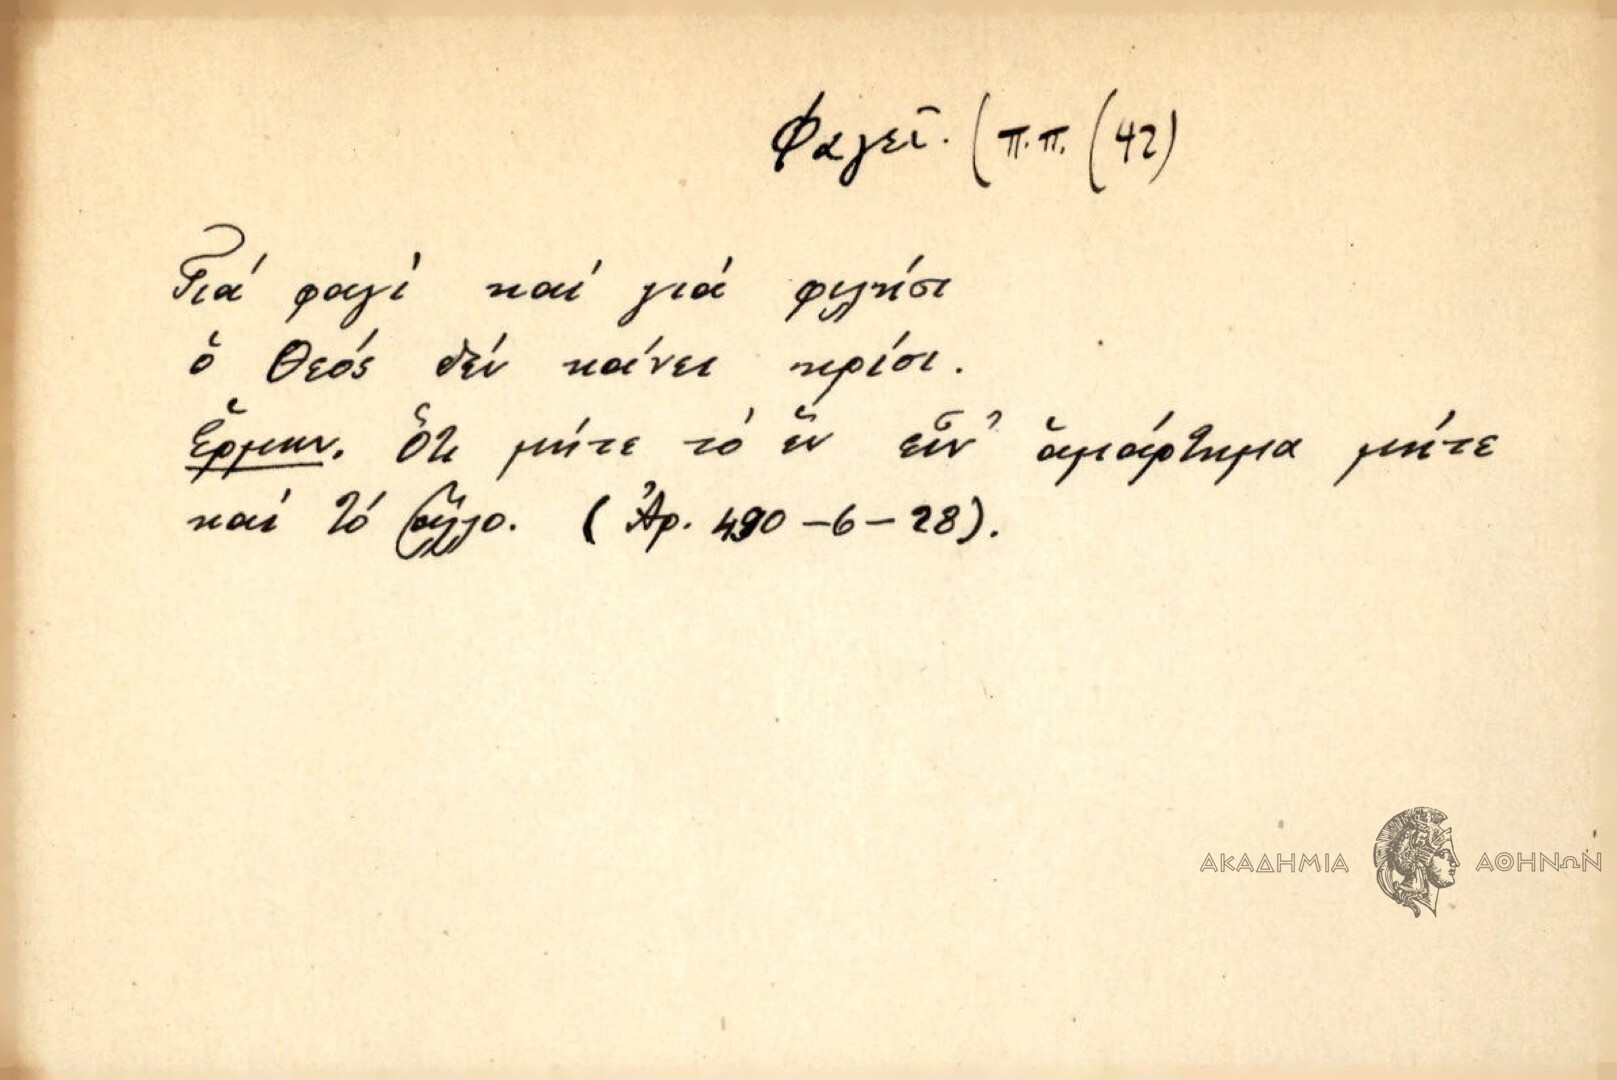 Φαγεῖ. (π.π. (42)
Γιά φαγί καί γιά φιλήσι
ὁ Θεός δέν κάνει κρίσι.
Ἑρμην. Ὅτι μήτε τό ἕν εἶν' ἁμάρτημα μήτε
καί τό ἄλλο. (Ἀρ. 490-6-28).
ΑΚΑΔΗΜΙΑ ΑΘΗΝΩΝ